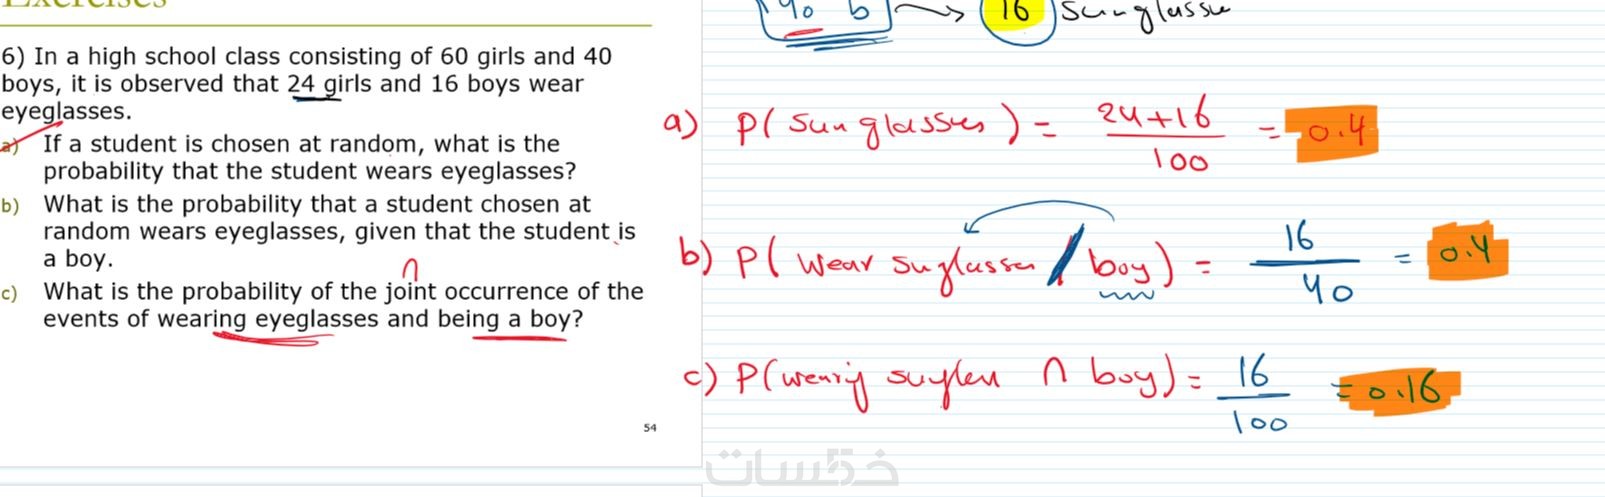 Exercises
6) In a high school class consisting of 60 girls and 40
boys, it is observed that 24 girls and 16 boys wear
eyeglasses.
a) If a student is chosen at random, what is the
probability that the student wears eyeglasses?
b) What is the probability that a student chosen at
random wears eyeglasses, given that the student is
a boy.
∩
c) What is the probability of the joint occurrence of the
events of wearing eyeglasses and being a boy?
54
40 b → 16 sunglasse
a) P(sunglasses) = 24+16 / 100 = 0.4
b) P(wear suglasses / boy) = 16 / 40 = 0.4
c) P(wearing ∩ boy) = 16 / 100 = 0.16
خمسات